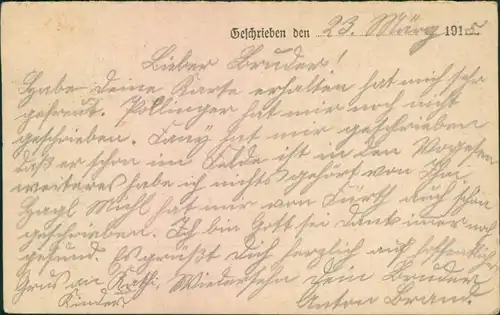 Geschrieben den 23. März 1915.
Lieber Bruder!
Habe deine Karte erhalten hat mich sehr
gefreut. Pöllinger hat mir noch nicht
geschrieben. hat mir geschrieben
daß er schon im Felde ist in den Vogesen
weiteres habe ich nichts gehört von Ihm.
Hagl Michl hat mir von Fürth auch schon
geschrieben. Ich bin Gott sei Dank imer noch
gesund. Es grüßt Dich herzlich auf hoffentlich
Grus an Kathi Wiedersehn Dein Bruder
Kinder Anton Brand.